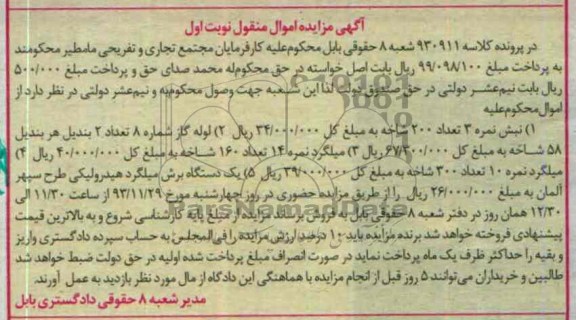 آگهی مزایده اموال منقول نوبت اول
در پرونده کلاسه ۹۳۰۹۱۱ شعبه ۸ حقوقی بابل محکوم‌علیه کارفرمایان مجتمع تجاری و تفریحی مامطیر محکومند
به پرداخت مبلغ ۹۹/۰۹۸/۱۰۰ ریال بابت اصل خواسته در حق محکوم‌له محمد صدای حق و پرداخت مبلغ ۵۰۰/۰۰۰
ریال بابت نیم‌عشر دولتی در حق صندوق دولت لذا این شعبه جهت وصول محکوم‌به و نیم‌عشر دولتی در نظر دارد از
اموال محکوم‌علیه
۱) نبش نمره ۳ تعداد ۲۰۰ شاخه به مبلغ کل ۳۴/۰۰۰/۰۰۰ ریال ۲) لوله گاز شماره ۸ تعداد ۲ بندیل هر بندیل
۵۸ شاخه به مبلغ کل ۶۷/۳۰۰/۰۰۰ ریال ۳) میلگرد نمره ۱۴ تعداد ۱۶۰ شاخه به مبلغ کل ۴۰/۰۰۰/۰۰۰ ریال ۴)
میلگرد نمره ۱۰ تعداد ۳۰۰ شاخه به مبلغ کل ۳۹/۰۰۰/۰۰۰ ریال ۵) یک دستگاه برش میلگرد هیدرولیکی طرح سپهر
آلمان به مبلغ ۲۶/۰۰۰/۰۰۰ ریال را از طریق مزایده حضوری در روز چهارشنبه مورخ ۹۳/۱۱/۲۹ از ساعت ۱۱/۳۰ الی
۱۲/۳۰ همان روز در دفتر شعبه ۸ حقوقی بابل به فروش برساند مزایده از مبلغ پایه کارشناسی شروع و به بالاترین قیمت
پیشنهادی فروخته خواهد شد برنده مزایده باید ۱۰ درصد ارزش مزایده را فی‌المجلس به حساب سپرده دادگستری واریز
و بقیه را حداکثر ظرف یک ماه پرداخت نماید در صورت انصراف مبلغ پرداخت شده اولیه در حق دولت ضبط خواهد شد
طالبین و خریداران می‌توانند ۵ روز قبل از انجام مزایده با هماهنگی این دادگاه از مال مورد نظر بازدید به عمل آورند.
مدیر شعبه ۸ حقوقی دادگستری بابل